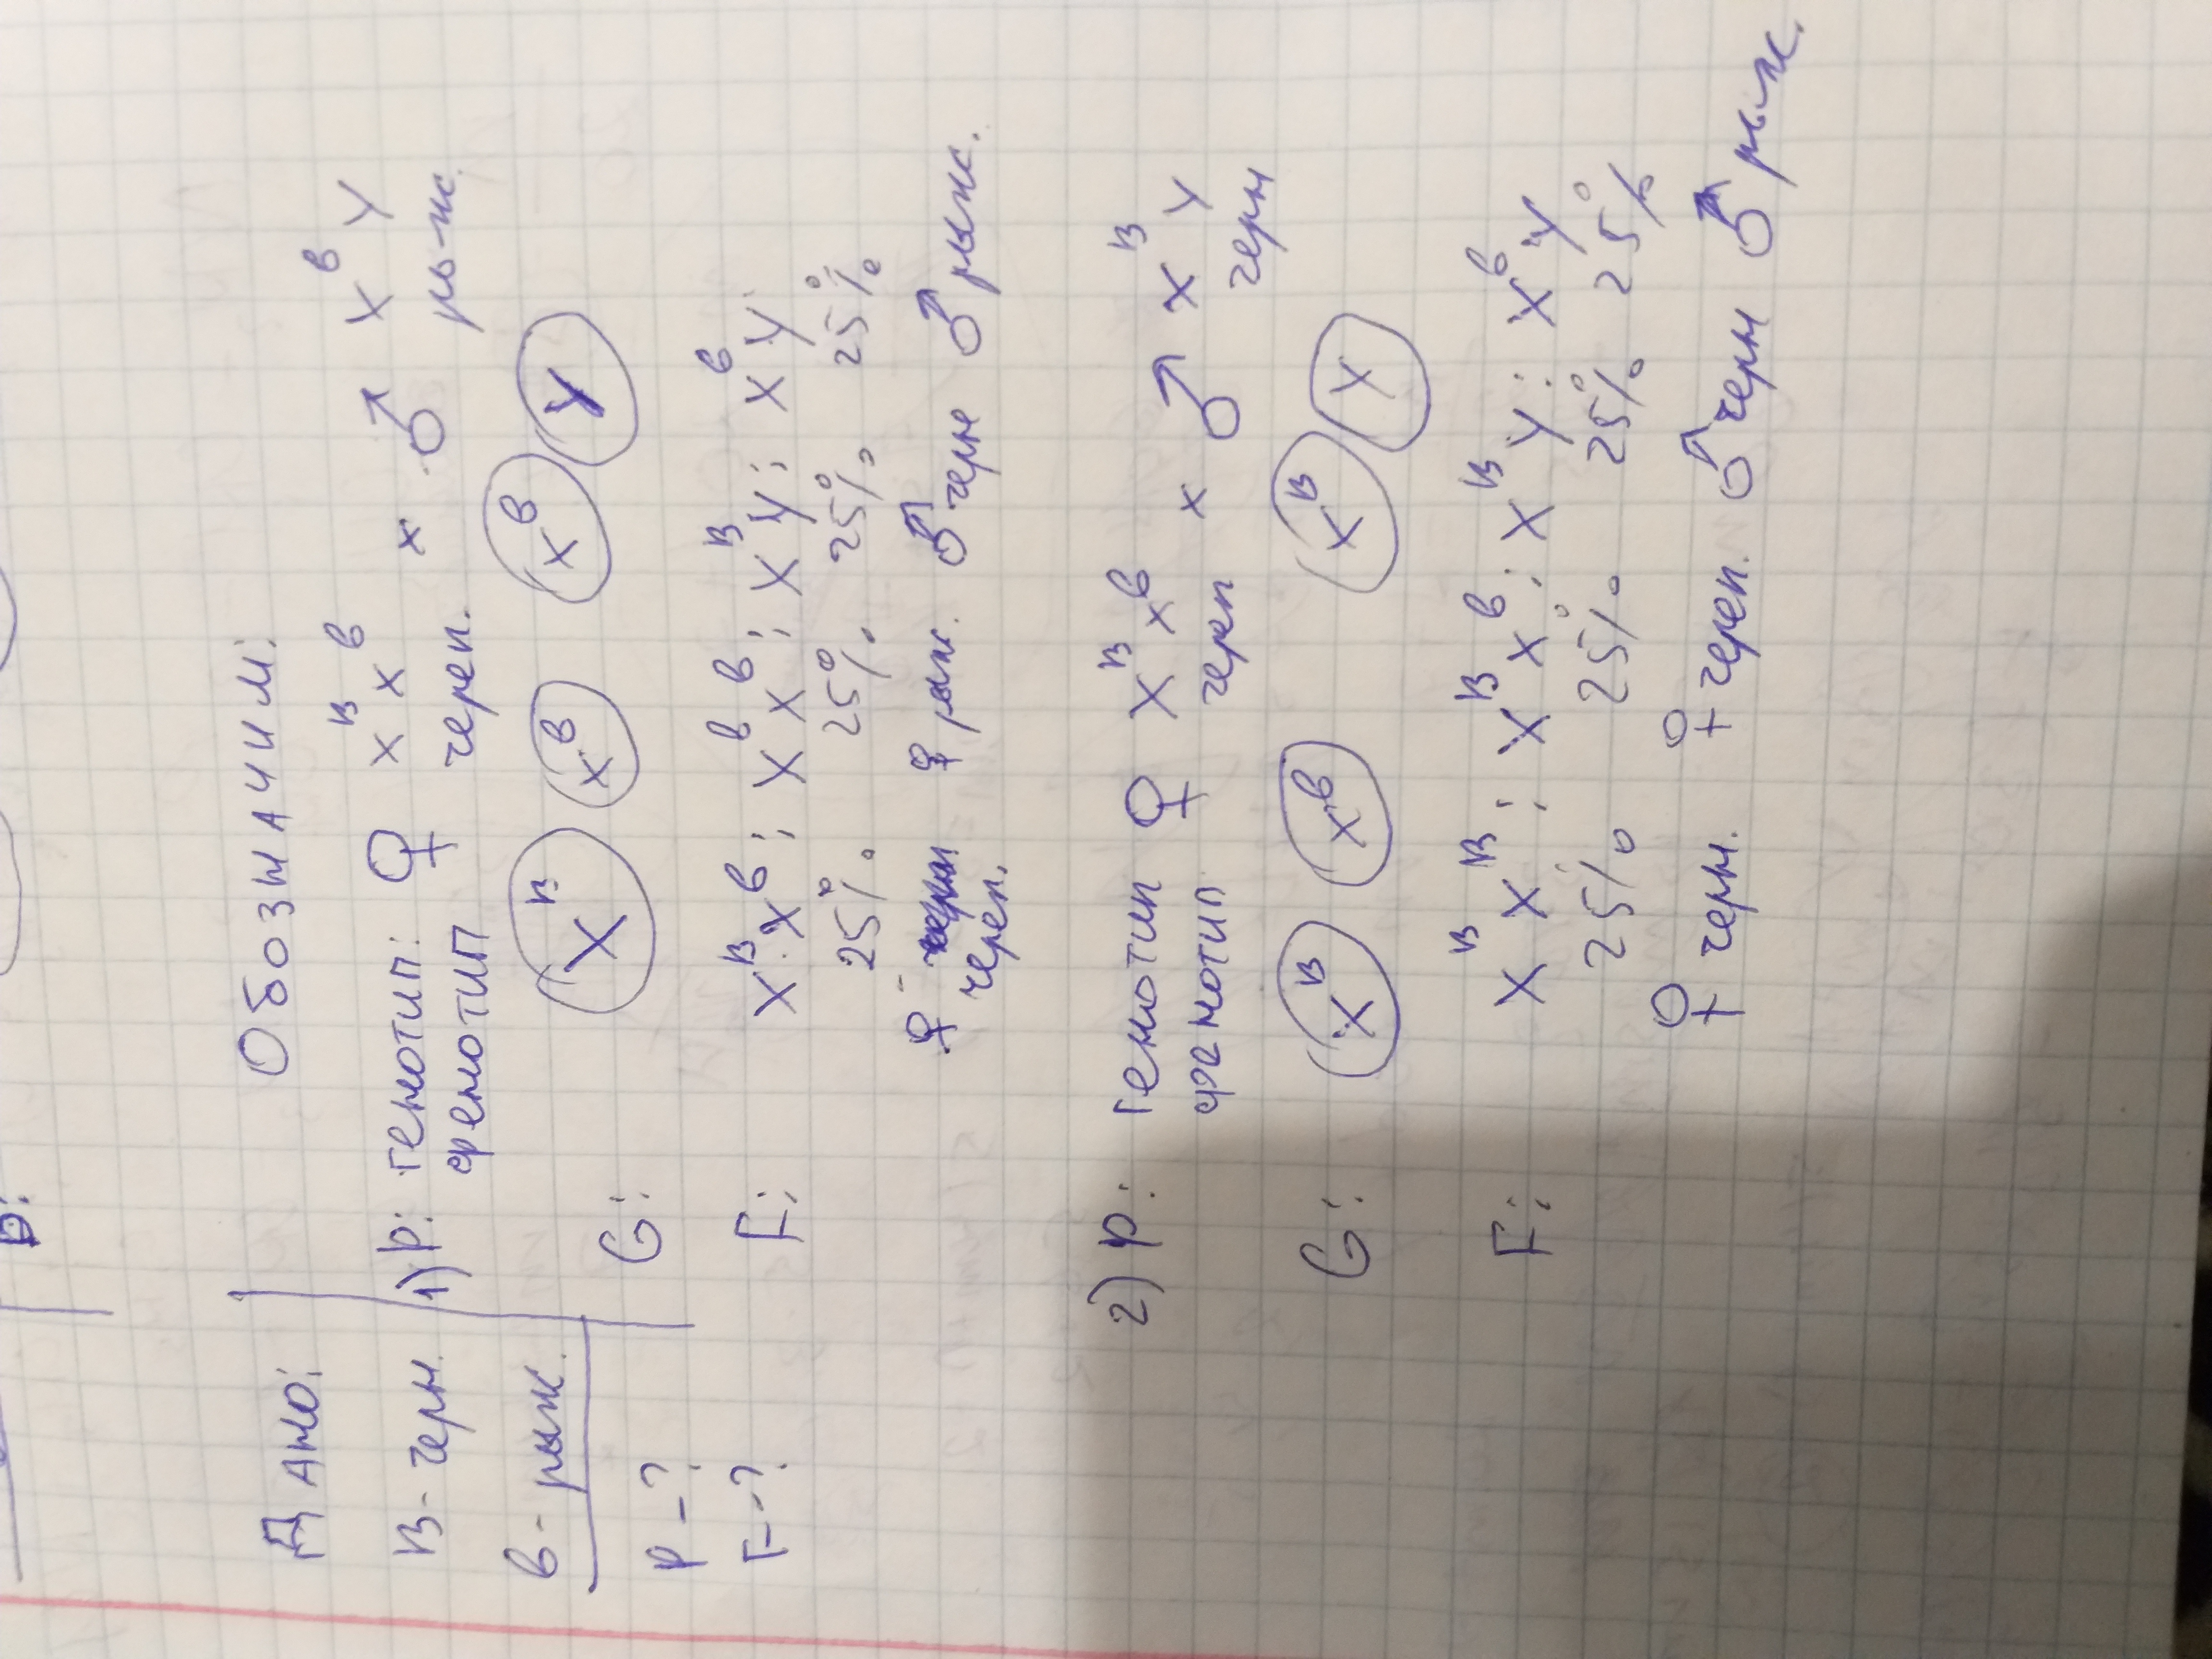 Дано:
В - черн.
в - рыж.
P - ?
F - ?
Обозначим:
1) P: генотип: ♀ X^В X^в x ♂ X^в Y
фенотип череп. рыж.
G: X^В X^в X^в Y
F: X^В X^в ; X^в X^в ; X^В Y ; X^в Y
25% 25% 25% 25%
♀ - череп. ♀ рыж. ♂ черн ♂ рыж.
2) P: генотип ♀ X^В X^в x ♂ X^В Y
фенотип череп черн
G: X^В X^в X^В Y
F: X^В X^В ; X^В X^в ; X^В Y ; X^в Y
25% 25% 25% 25%
♀ черн. ♀ череп. ♂ черн ♂ рыж.